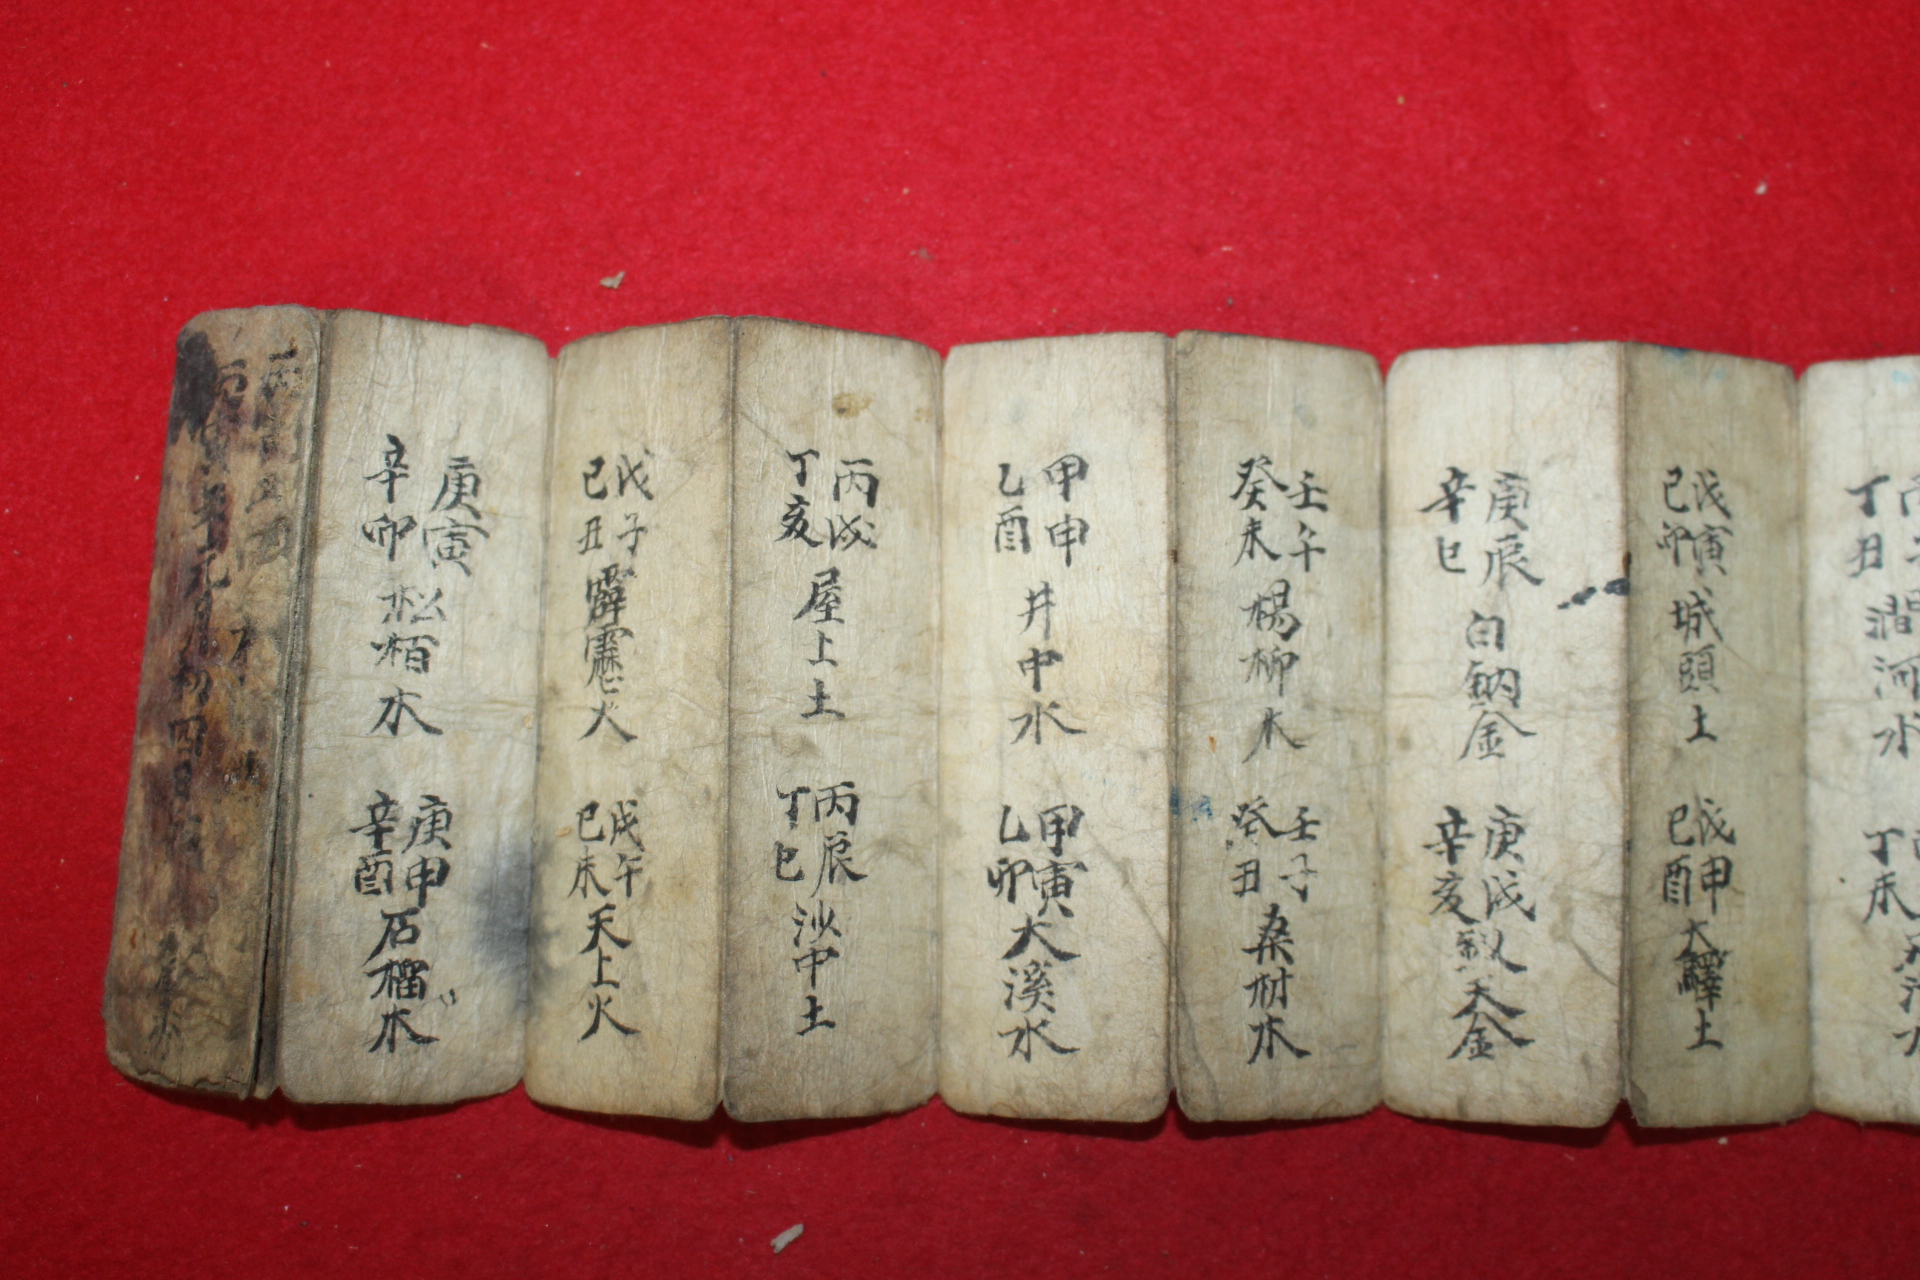 丁丑
河水
丁未
戊寅
己卯
城頭土
戊申
己酉
大驛土
庚辰
辛巳
白鈉金
庚戌
辛亥
釵天金
壬午
癸未
楊柳木
壬子
癸丑
桑村木
甲申
乙酉
井中水
甲寅
乙卯
大溪水
丙戌
丁亥
屋上土
丙辰
丁巳
沙中土
戊子
己丑
霹靂火
戊午
己未
天上火
庚寅
辛卯
松栢木
庚申
辛酉
石榴木
丙寅年元月初四日